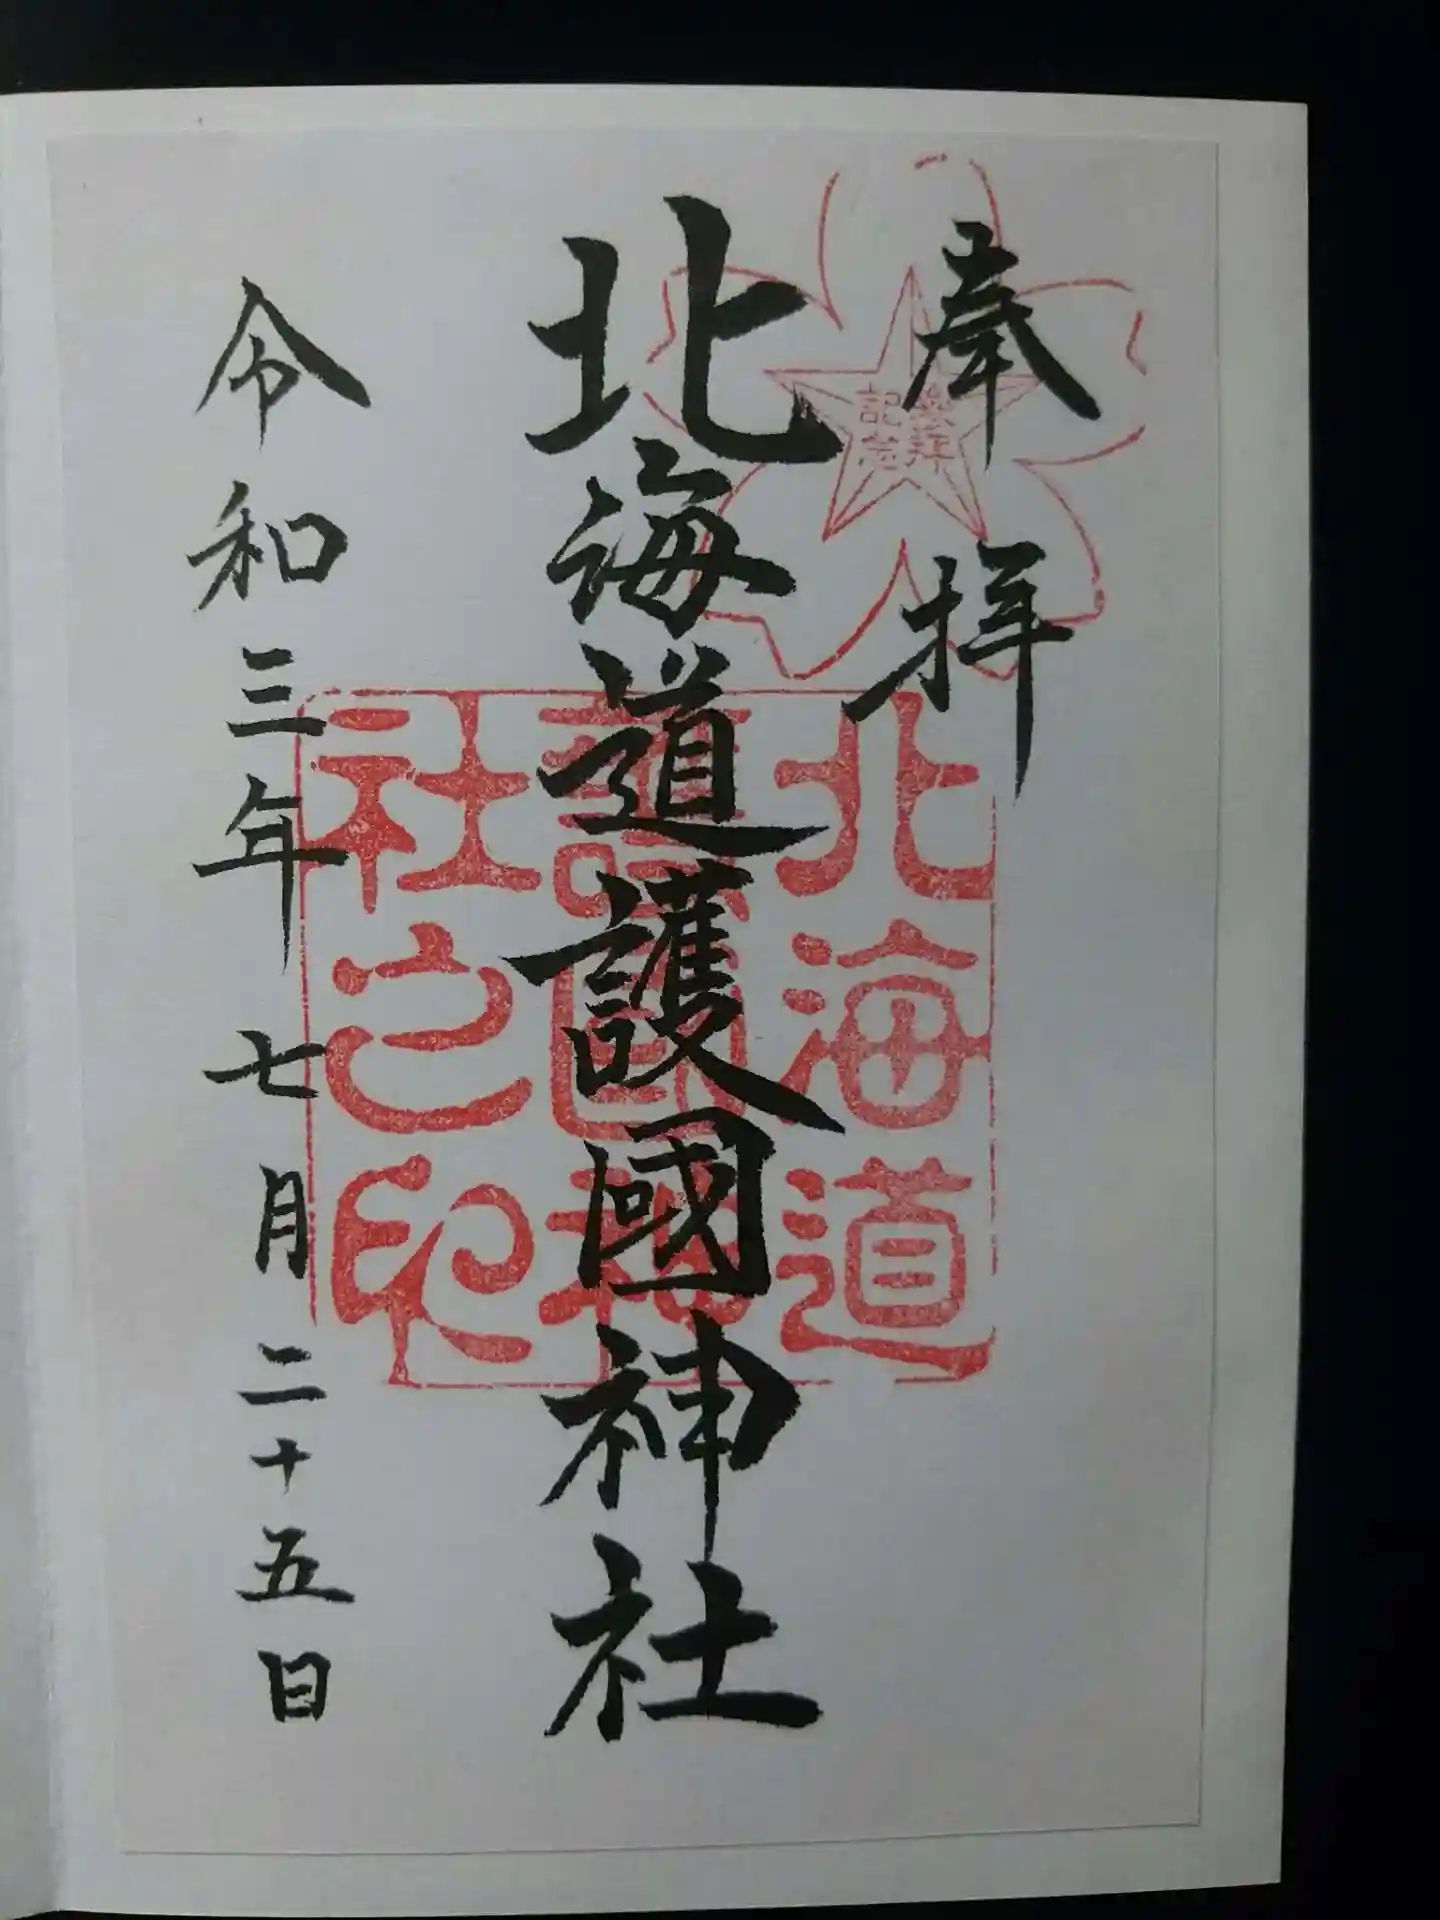 奉拝
参拝
記念
北海道護國神社
北海道
護國神
社之印
令和三年七月二十五日